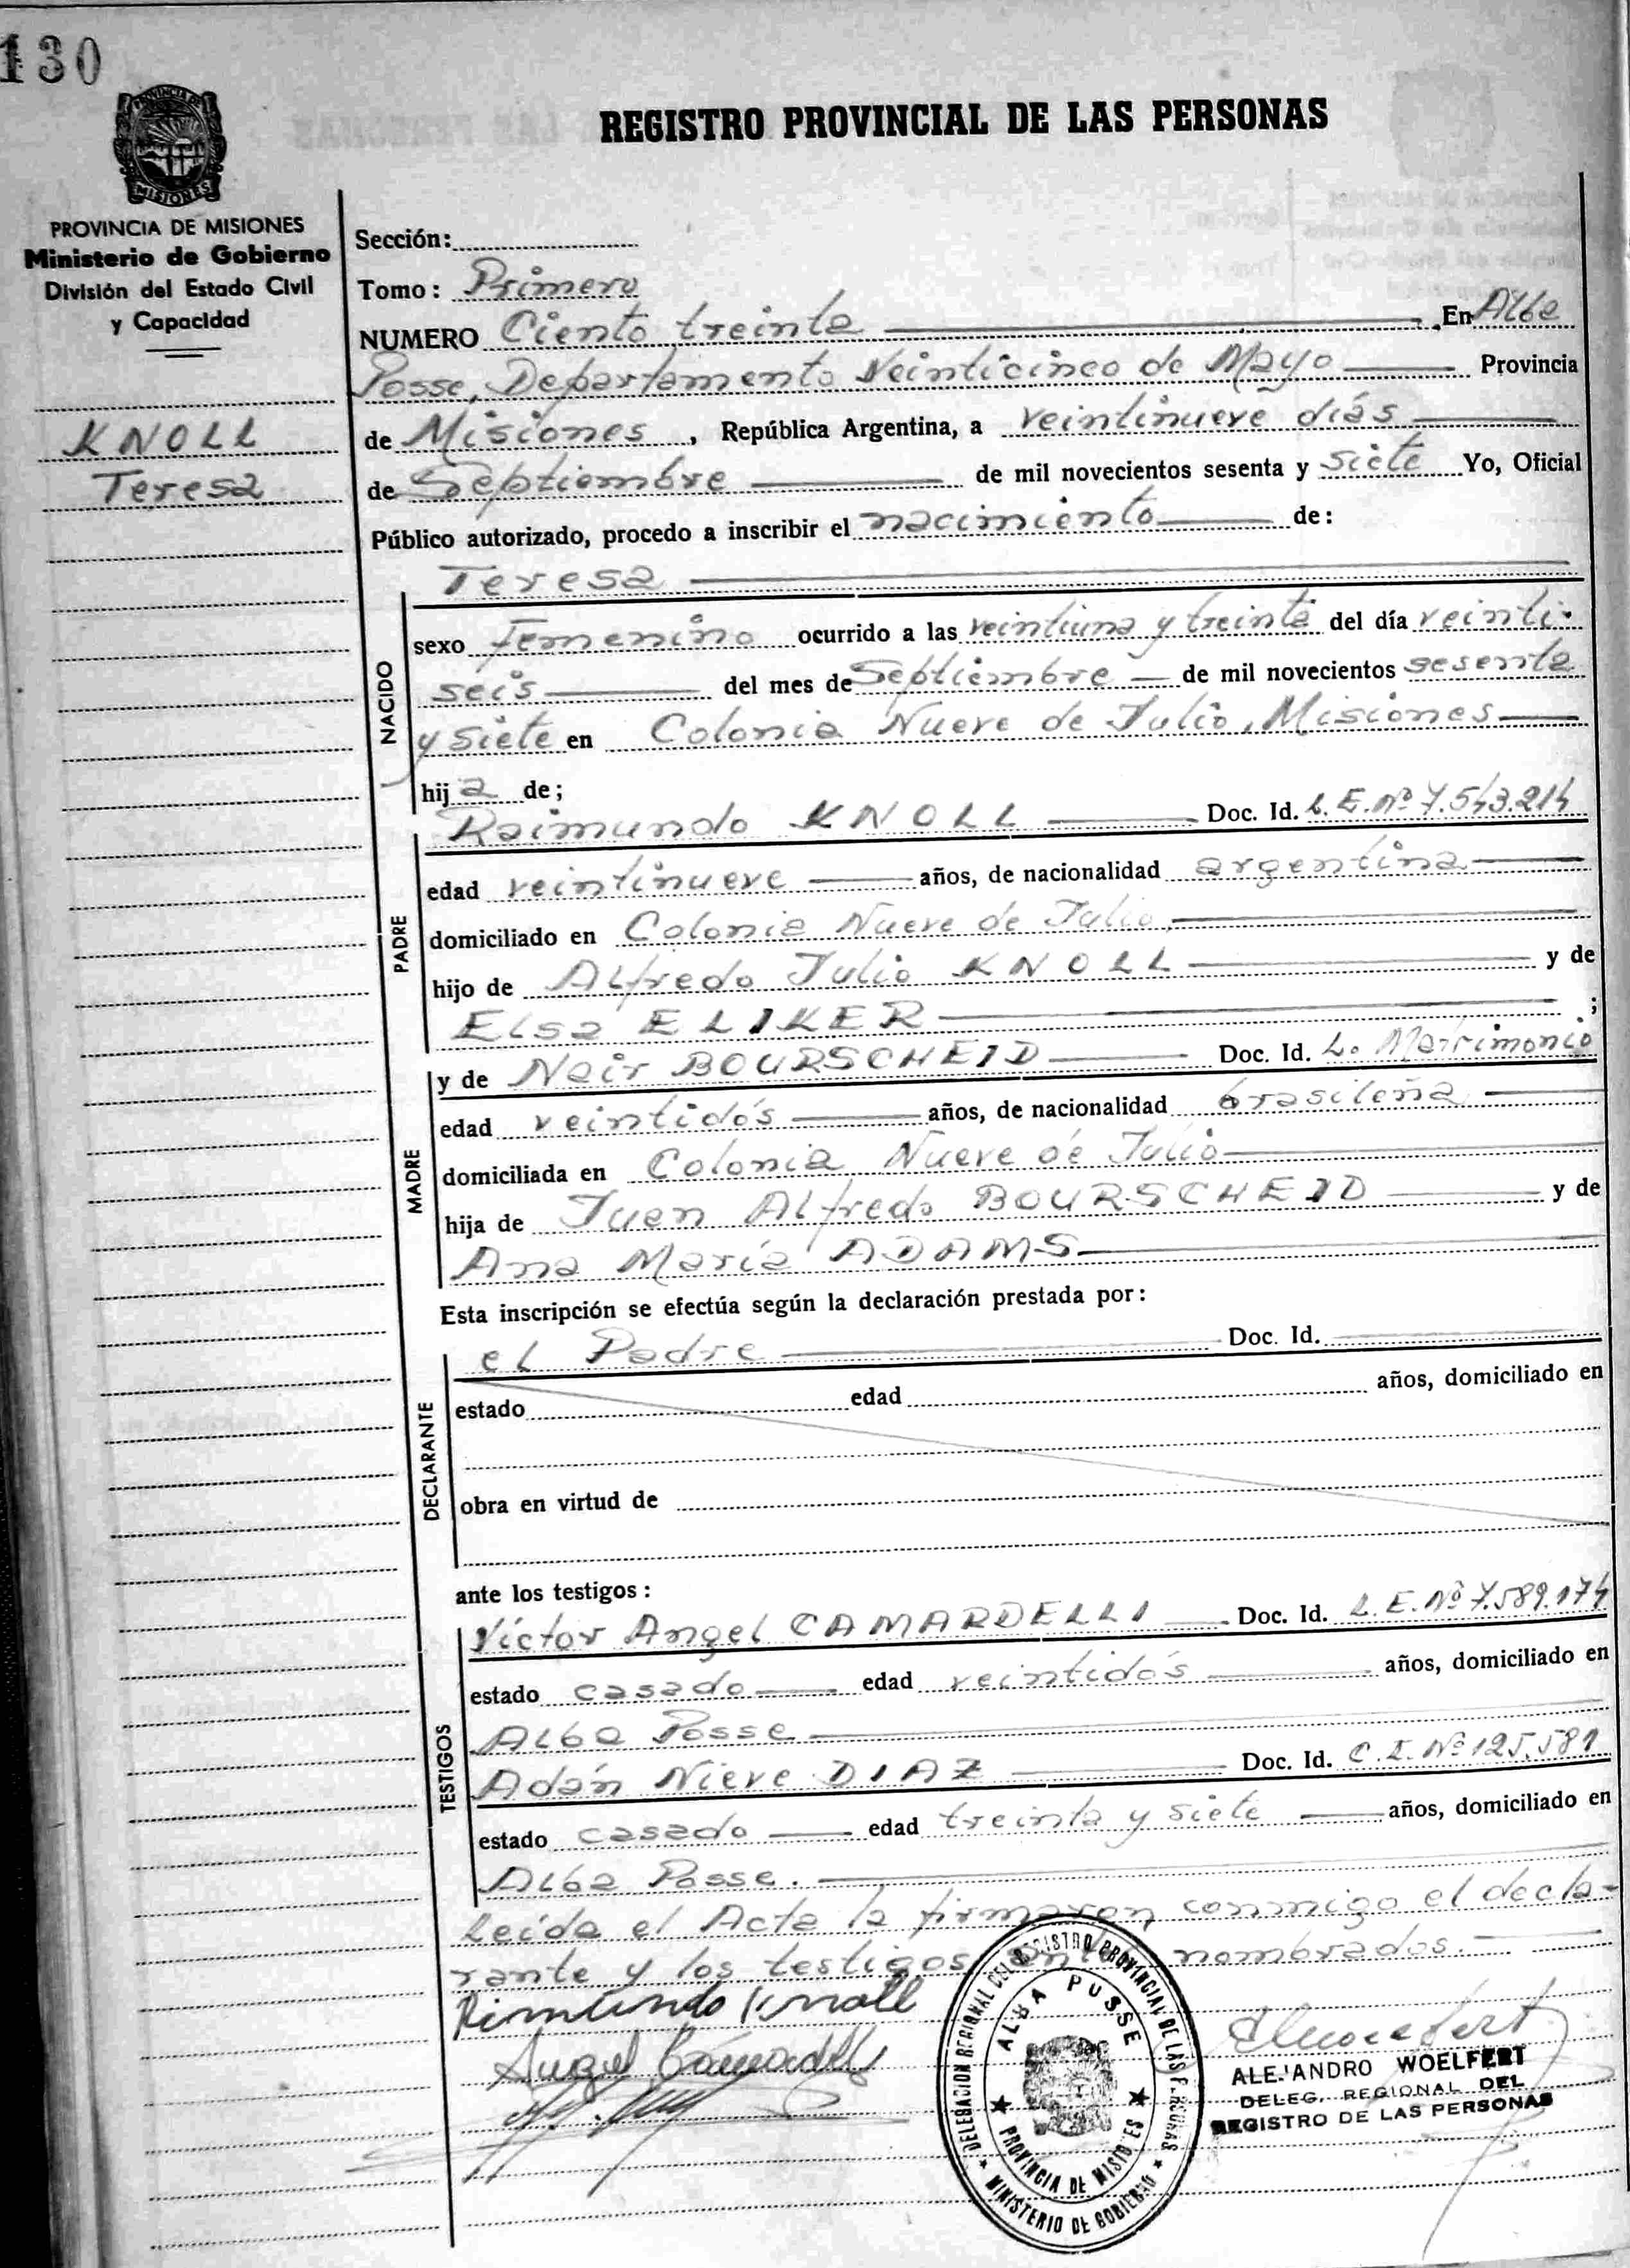 130
PROVINCIA DE
MISIONES
REGISTRO PROVINCIAL DE LAS PERSONAS
PROVINCIA DE MISIONES
Ministerio de Gobierno
División del Estado Civil
y Capacidad
KNOLL
Teresa
Sección:
Tomo: Primero
NUMERO Ciento treinta En Alba
Posse, Departamento Veinticinco de Mayo Provincia
de Misiones, República Argentina, a veintinueve días
de Septiembre de mil novecientos sesenta y siete Yo, Oficial
Público autorizado, procedo a inscribir el nacimiento de:
Teresa
NACIDO
sexo Femenino ocurrido a las veintiuna y treinta del día veinti-
seis del mes de Septiembre de mil novecientos sesenta
y siete en Colonia Nueve de Julio, Misiones
hij a de;
PADRE
Raimundo KNOLL Doc. Id. L.E.Nº 7.543.214
edad veintinueve años, de nacionalidad argentina
domiciliado en Colonia Nueve de Julio,
hijo de Alfredo Julio KNOLL y de
Elsa ELIKER ;
MADRE
y de Neir BOURSCHEID Doc. Id. L. Matrimonio
edad veintidós años, de nacionalidad brasileña
domiciliada en Colonia Nueve de Julio
hija de Juan Alfredo BOURSCHEID y de
Ana María ADAMS
Esta inscripción se efectúa según la declaración prestada por:
DECLARANTE
el Padre Doc. Id.
estado edad años, domiciliado en
obra en virtud de
ante los testigos:
TESTIGOS
Víctor Angel CAMARDELLI Doc. Id. L.E.Nº 7.589.174
estado casado edad veintidós años, domiciliado en
Alba Posse
Adán Nieve DIAZ Doc. Id. C.I.Nº 125.581
estado casado edad treinta y siete años, domiciliado en
Alba Posse.
Leída el Acta la firmaron conmigo el decla-
rante y los testigos nombrados.
Rimundo Knoll
Angel Camardelli
DELEGACION REGIONAL DEL REGISTRO PROVINCIAL DE LAS PERSONAS
MINISTERIO DE GOBIERNO
ALBA POSSE
PROVINCIA DE MISIONES
ALEJANDRO WOELFERT
DELEG. REGIONAL DEL
REGISTRO DE LAS PERSONAS